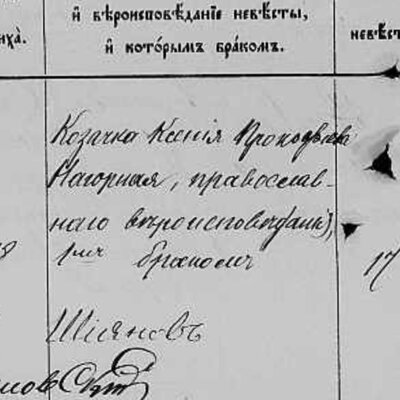 и҆ вѣроисповѣданіе невѣсты,
и҆ которымъ бракомъ.
иха.
невѣст
Козачка Ксенія Прокофіева
Нагорная, православ-
наго вѣроисповѣданія,
1мъ бракомъ
17
Шіяновъ